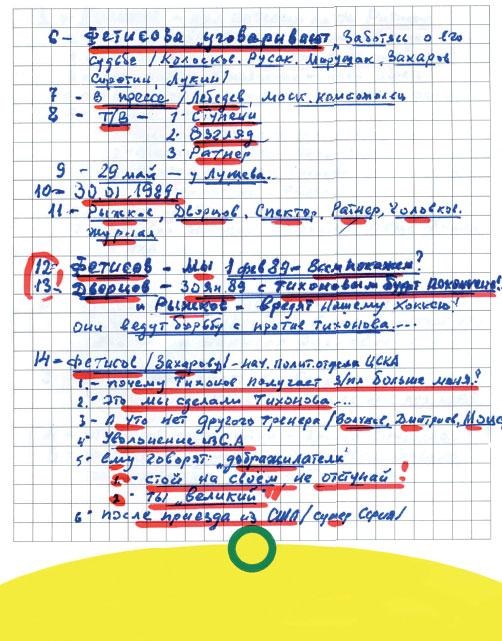 6 - Фетисова „уговаривают", Заботясь о его
судьбе / Колосков. Русак, Марущак, Захаров
Сыротин, Лукин /
7 - в прессе / Лебедев, моск. комсомолец
8 - Т/В - 1. Ступени
2. Взгляд
3. Ратнер
9 - 29 май - у Лужева..
10 - 30.01.1989г.
11 - Рыжков, Дворцов, Спектор, Ратнер, Чоловков.
журнал
12 - Фетисов - Мы 1 фев 89 - Всем покажем?
13 - Дворцов - 30 ян. 89 с Тихоновым будет покончено!
и Рыжков - вредят нашему хоккею!
Они ведут борьбу с против Тихонова....
14 - Фетисов / Захарову / - нач. полит. отдела ЦСКА
1. - почему Тихонов получает з/пл больше меня?
2. Это мы сделали Тихонова...
3 - А што нет другого тренера / Волчков, Дмитриев,
4. Увольнение из С.А
5. ему говорят „доброжилатели"
1. стой на своём, не отступай!
2. ты „великий"
6. после приезда из США / супер Серия /